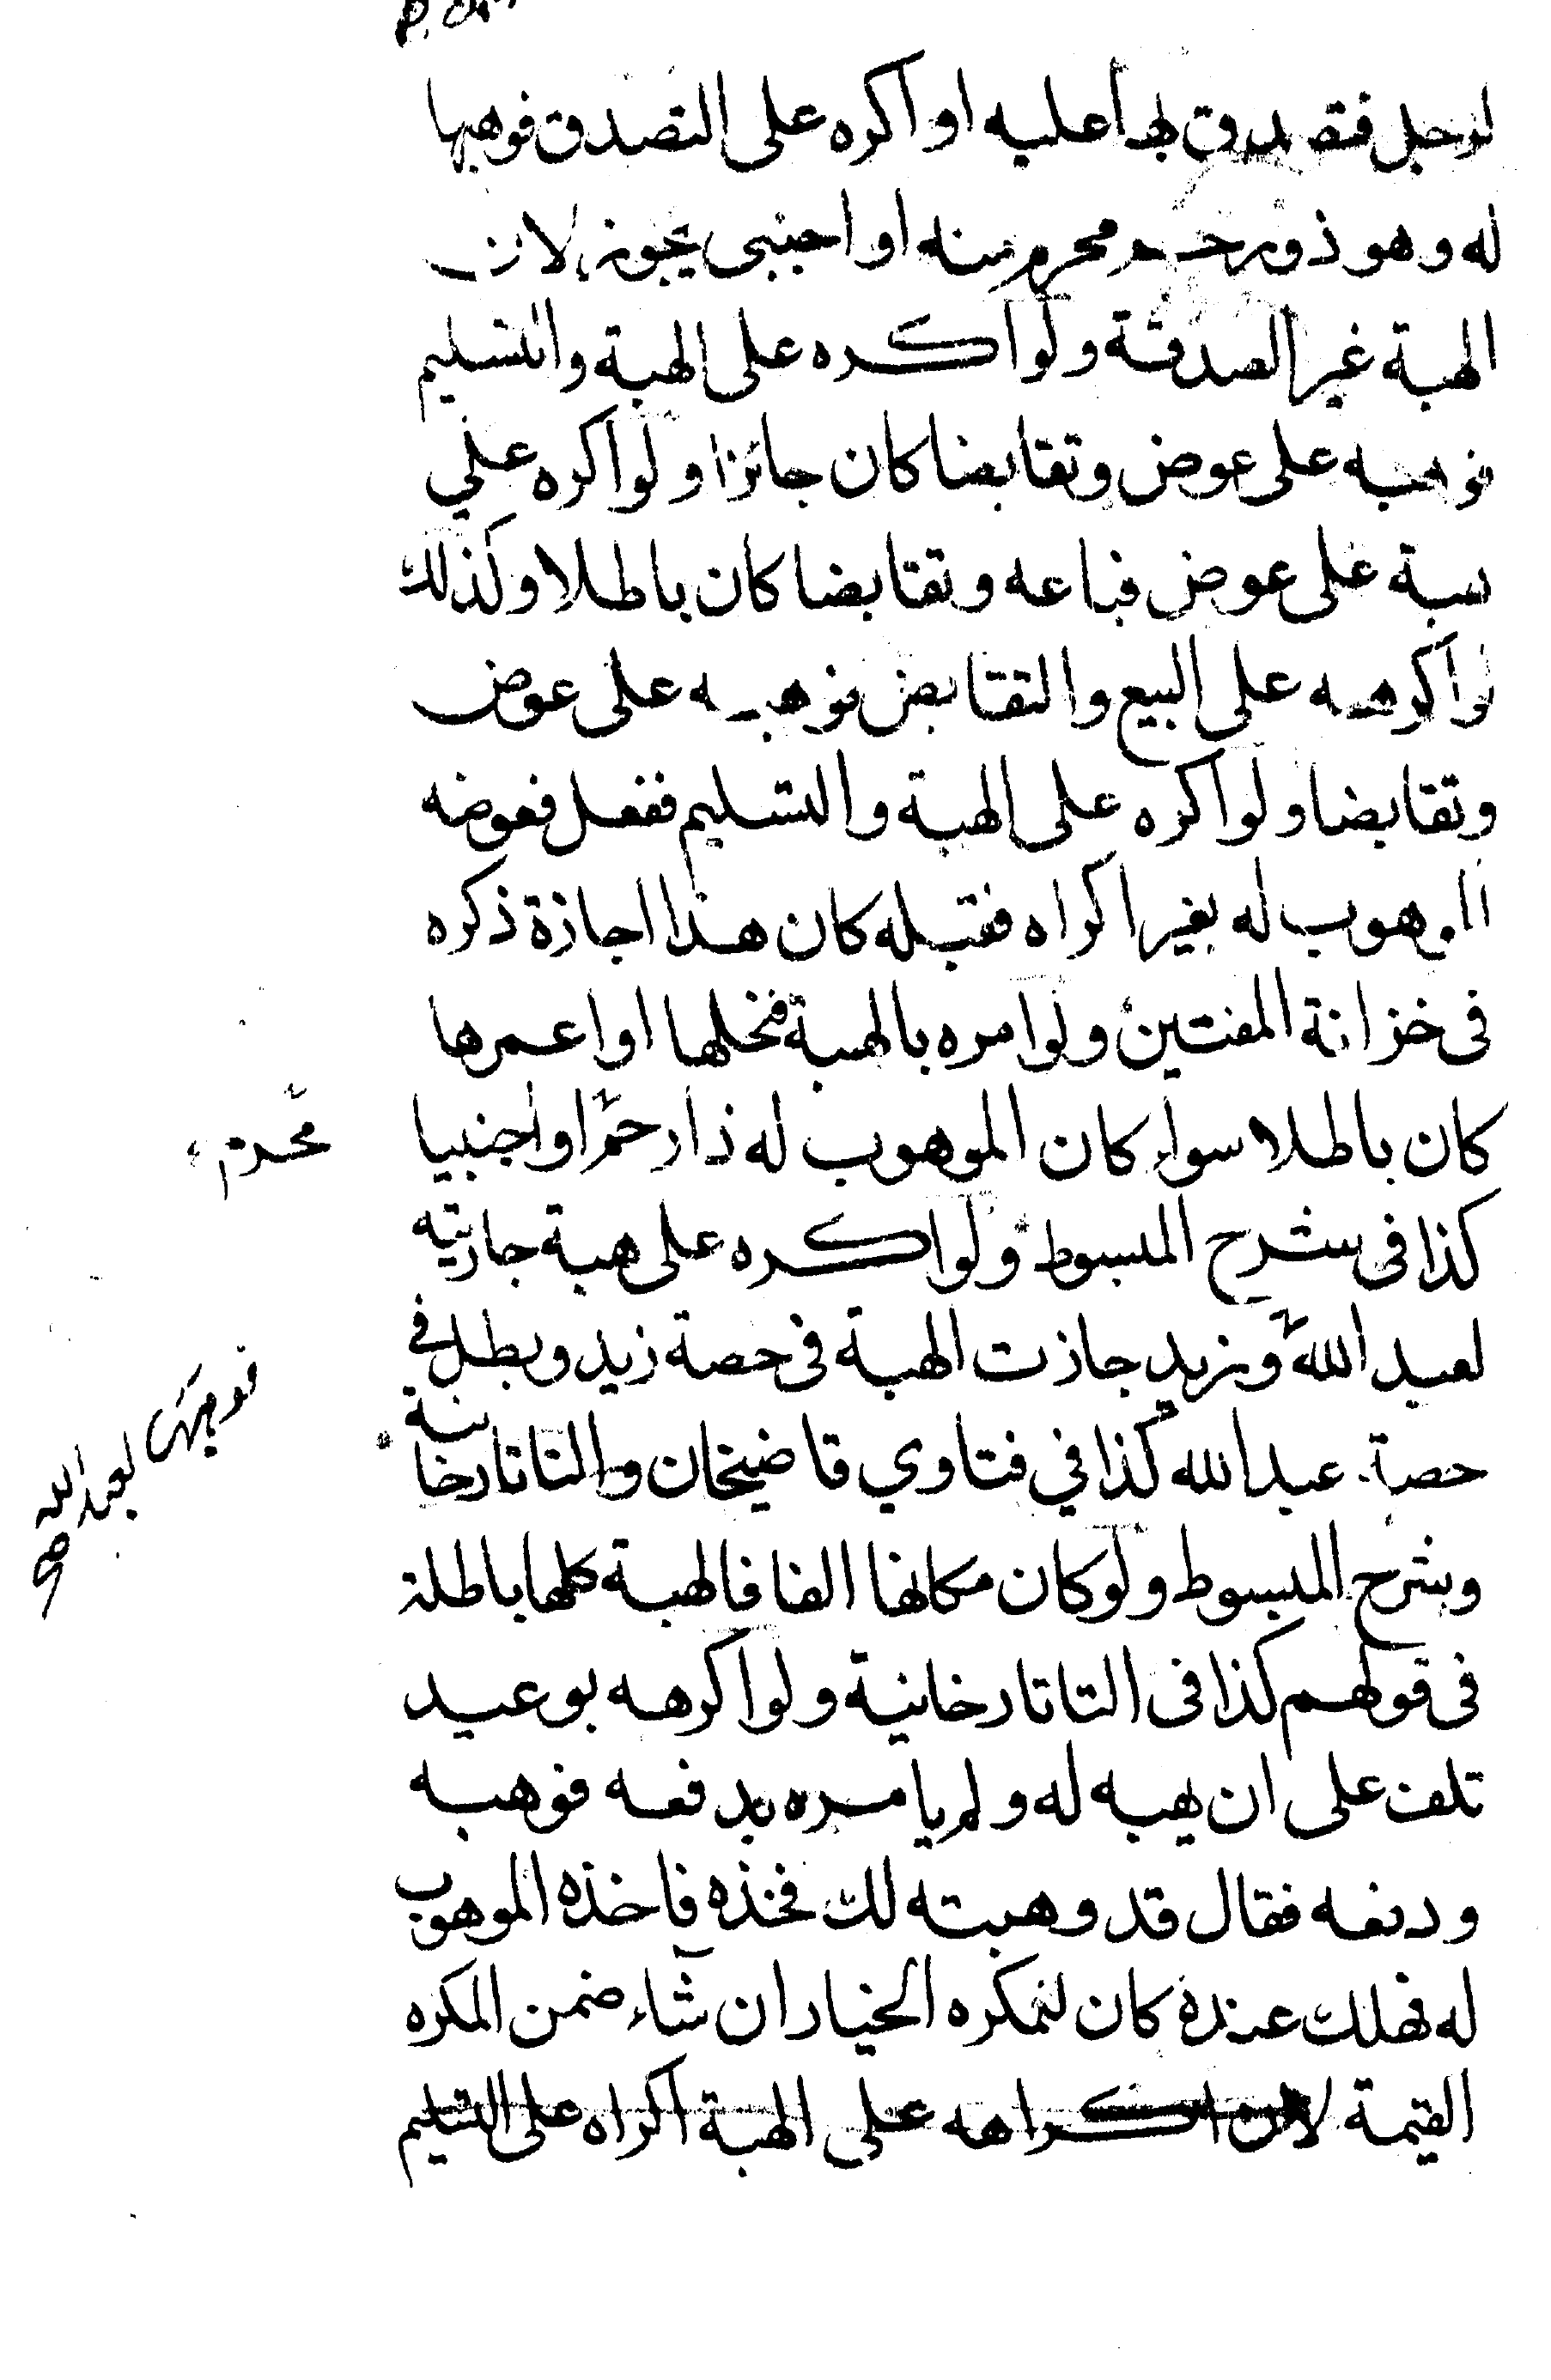 لرجل فتصدق بها عليه او اكره على التصدق فوهبها
له وهو ذو رحم محرم منه او اجنبي يجوز لان
الهبة غير الصدقة ولو اكره على الهبة والتسليم
فوهبه على عوض وتقابضا كان جائزا ولو اكره علي
هبة على عوض فباعه وتقابضا كان باطلا وكذلك
لو اكرهه على البيع والتقابض فوهبه على عوض
وتقابضا ولو اكره على الهبة والتسليم ففعل فعوضه
الموهوب له بغير اكراه فقبله كان هذا اجازة ذكره
فى خزانة المفتين ولو امره بالهبة فنحلها او اعمرها
كان باطلا سواء كان الموهوب له ذا رحم او اجنبيا
محرم
كذا فى شرح المبسوط ولو اكره على هبة جاريته
لعبد الله وزيد جازت الهبة فى حصة زيد وبطل في
فوهبها لعبد الله
حصة عبد الله كذا في فتاوي قاضيخان والتاتارخانية
وشرح المبسوط ولو كان مكانها الفا فالهبة كلها باطلة
فى قولهم كذا فى التاتارخانية ولو اكرهه بوعيد
تلف على ان يهبه له ولم يامره بدفعه فوهبه
ودفعه فقال قد وهبته لك فخذه فاخذه الموهوب
له فهلك عنده كان للمكره الخيار ان شآء ضمن المكره
القيمة لان اكراهه على الهبة اكراه على التسليم